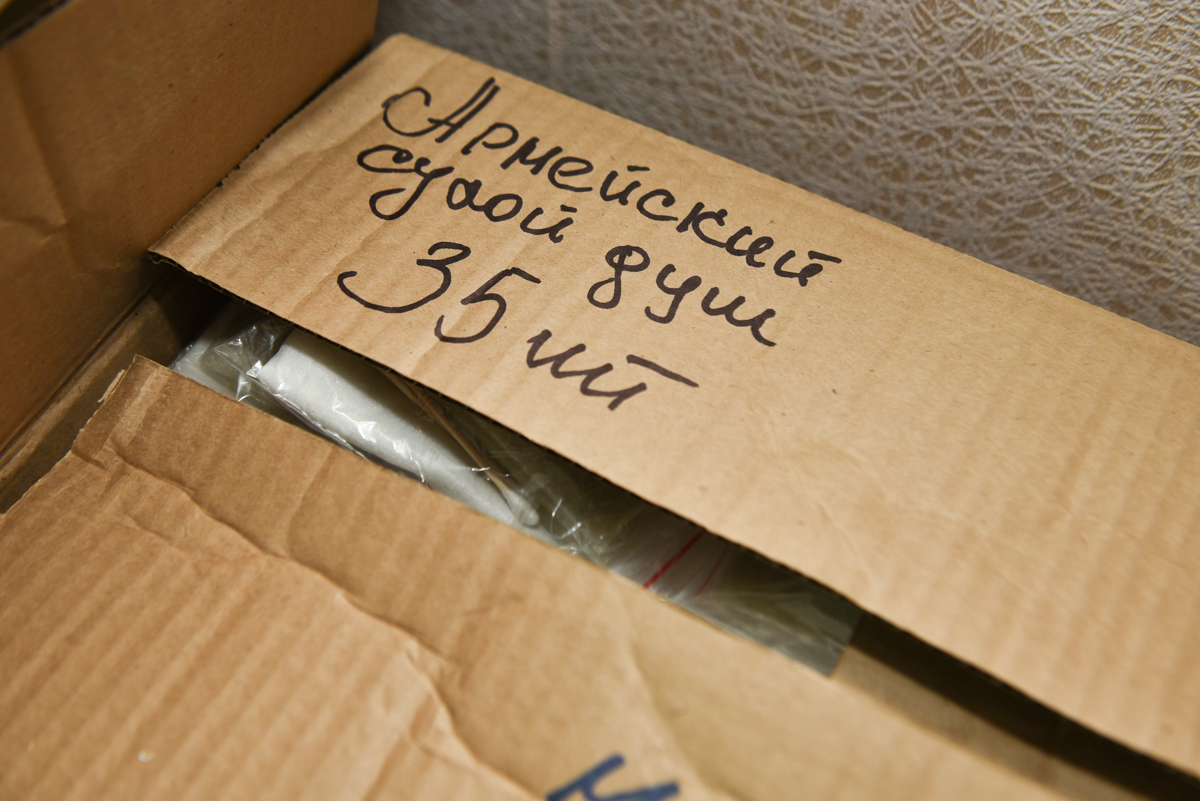 Армейский
сухой душ
35 шт